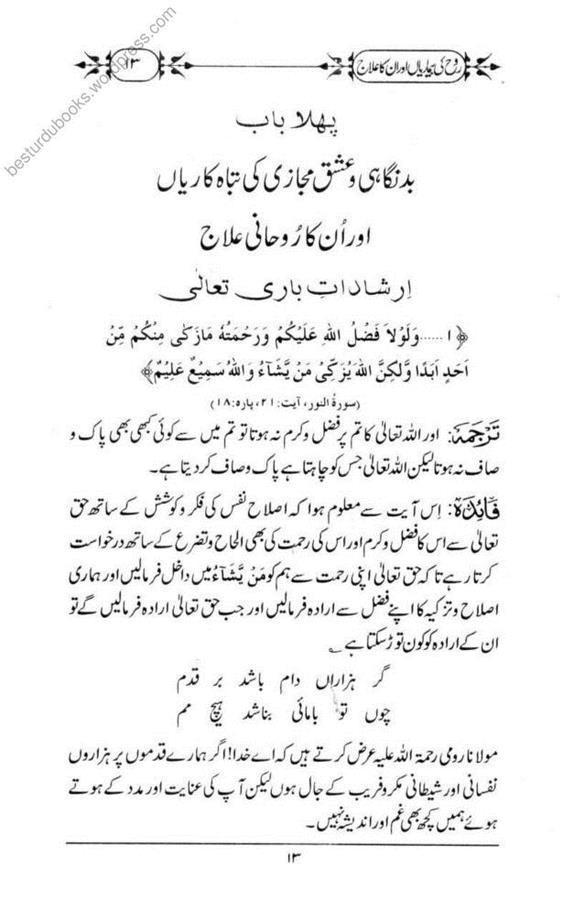 روح کی بیماریاں اور ان کا علاج
۱۳
besturdubooks.wordpress.com
پہلا باب
بدنگاہی و عشق مجازی کی تباہ کاریاں
اور اُن کا رُوحانی علاج
اِرشاداتِ باری تعالٰی
﴿۱......وَلَوْلاَ فَضْلُ اللهِ عَلَيْكُمْ وَرَحْمَتُهٗ مَازَكٰى مِنْكُمْ مِّنْ
اَحَدٍ اَبَدًا وَّلٰكِنَّ اللهَ يُزَكِّىْ مَنْ يَّشَآءُ وَاللهُ سَمِيْعٌ عَلِيْمٌ﴾
(سورۃ النور، آیت:۲۱، پارہ:۱۸)
تَرجَمَہ: اور اللہ تعالیٰ کا تم پر فضل و کرم نہ ہوتا تو تم میں سے کوئی کبھی بھی پاک و
صاف نہ ہوتا لیکن اللہ تعالیٰ جس کو چاہتا ہے پاک و صاف کر دیتا ہے۔
فَائِدَہ: اِس آیت سے معلوم ہوا کہ اصلاح نفس کی فکر و کوشش کے ساتھ حق
تعالیٰ سے اس کا فضل و کرم اور اس کی رحمت کی بھی الحاح و تضرع کے ساتھ درخواست
کرتا رہے تاکہ حق تعالیٰ اپنی رحمت سے ہم کو مَنْ يَّشَآءُ میں داخل فرمالیں اور ہماری
اصلاح و تزکیہ کا اپنے فضل سے ارادہ فرمالیں اور جب حق تعالیٰ ارادہ فرمالیں گے تو
ان کے ارادہ کو کون توڑ سکتا ہے ؎
گر ہزاراں دام باشد بر قدم
چوں تو بامائی بناشد ہیچ مم
مولانا رومی رحمۃ اللہ علیہ عرض کرتے ہیں کہ اے خدا! اگر ہمارے قدموں پر ہزاروں
نفسانی اور شیطانی مکر و فریب کے جال ہوں لیکن آپ کی عنایت اور مدد کے ہوتے
ہوئے ہمیں کچھ بھی غم اور اندیشہ نہیں۔
۱۳